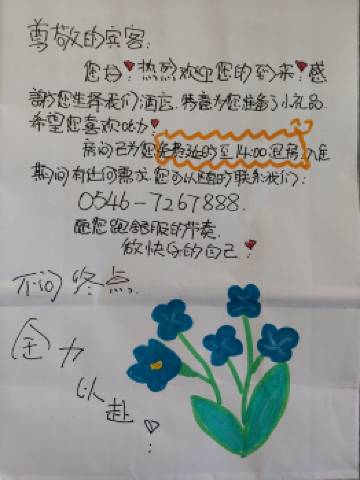 尊敬的宾客:
您好!热烈欢迎您的到来!感
谢您选择我们酒店.特意为您准备了小礼品.
希望您喜欢!
房间已为您免费延时至14:00退房,入住
期间有任何需求,您可以随时联系我们:
0546-7267888.
愿您跟舒服的节奏.
做快乐的自己!
不问终点.
全力
以赴!